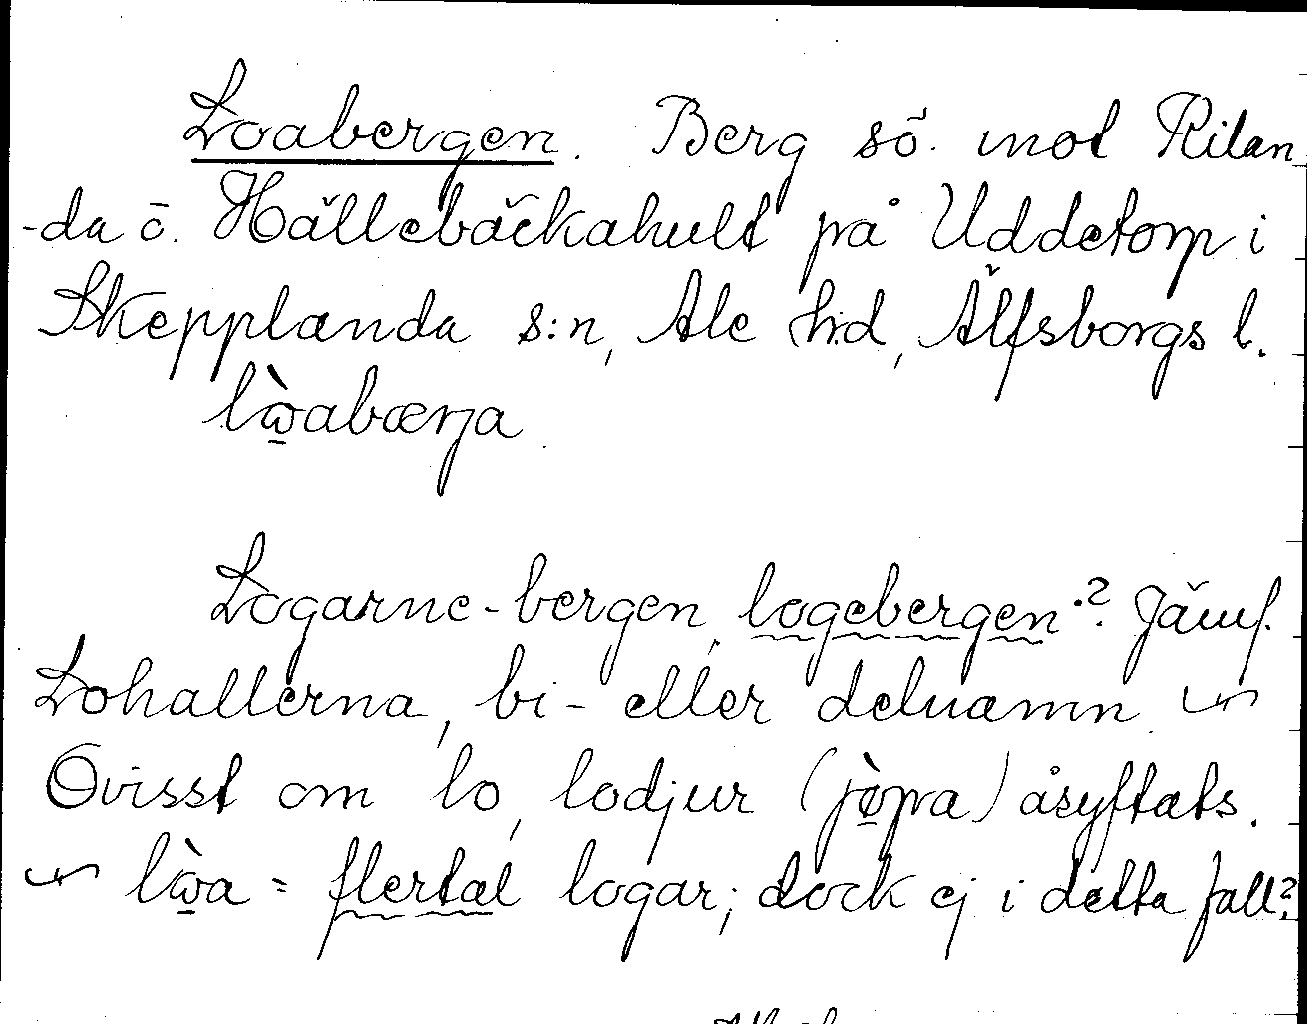 Loabergen. Berg sö. mot Rilan
-da o. Hällebäckahult på Uddetorp i
Skepplanda s:n, Ale h:d, Älfsborgs l.
lòabærja
Logarne-bergen, logebergen? Jämf.
Lohallerna, bi- eller delnamn.
Ovisst om lo, lodjur (jöpa) åsyftats.
lòa = flertal logar; dock ej i detta fall?